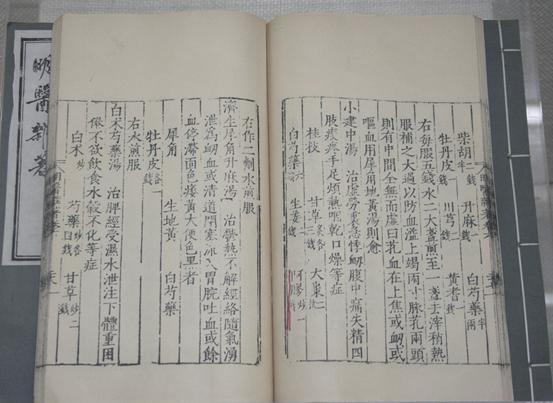 明醫雜著
柴胡半錢 升麻半錢 白芍藥兩半
牡丹皮錢 川芎錢 黃耆錢
右每服五錢水二大盞煎至一盞去滓稍熱
服補之大過以防血溢上竭兩寸脉芤兩頭
則有中間全無而虛曰芤血在上焦或衂或
嘔血用犀角地黃湯則愈
小建中湯 治虛勞裏急悸衂腹中痛失精四
肢痠疼手足煩熱咽乾口燥等症
桂枝 甘草炙 大棗
白芍藥六錢 生姜錢
右作二劑水煎服
濟生犀角升麻湯 治鬱熱不解經絡隨氣湧
泄為衂血或清道閉塞流入胃脘吐血或餘
血停滯面色痿黃大便色黑者
犀角 生地黃 白芍藥
牡丹皮各錢
右水煎服
白术芍藥湯 治脾經受濕水泄注下體重困
倦不欲飲食水穀不化等症
白术 芍藥炒各四錢 甘草炒二錢